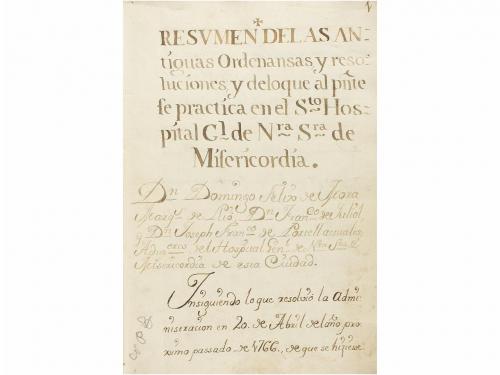 RESVMEN DE LAS AN-
tiguas Ordenansas, y reso-
luciones, y deloque al pñte
se practica en el Sto Hos-
pital Gl de Nra Sra de
Misericordia.
Dn Domingo Felix de Mora
Marqs de Lió, Dn Franco de Juliol,
y Dn Joseph Franco de Portell actuales
Admres del Hospital Genl de Nra Sra de
Misericordia de esta Ciudad.
Insiguiendo lo que resolvió la Admi-
niseracion en 20. de Abril del año pro-
ximo passado de 1766, de que se hiziese